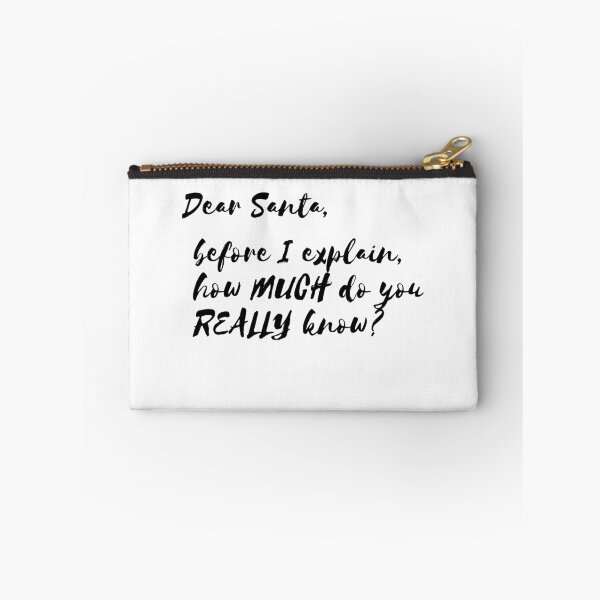 Dear Santa,
before I explain,
how MUCH do you
REALLY know?